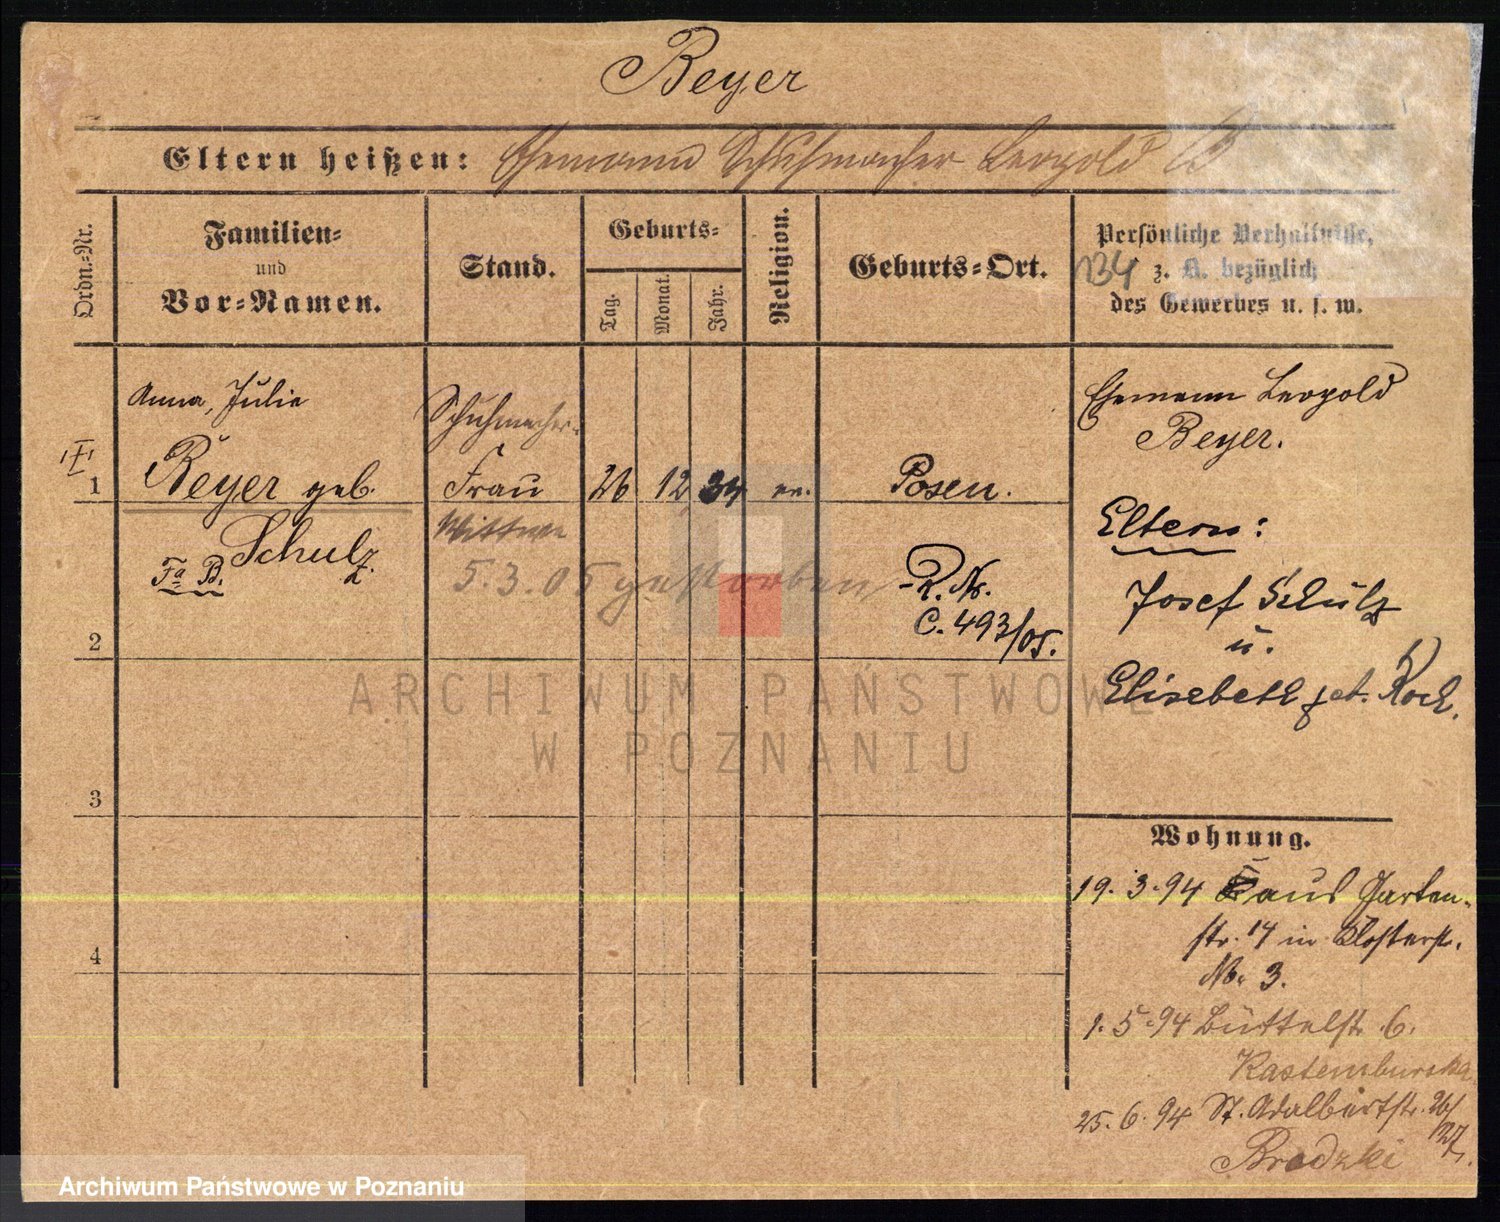 Beyer
Eltern heißen: Ehemann Schuhmacher Leopold B
Ordn.-Nr.
Familien-
und
Vor-Namen.
Stand.
Geburts-
Tag.
Monat.
Jahr.
Religion.
Geburts-Ort.
Persönliche Verhältnisse,
z. B. bezüglich
des Gewerbes u. s. w.
134
Anna, Julie
1
Beyer geb.
Schulz
Fa B.
Schuhmacher-
Frau
Wittwe
26 12 34 ev.
Posen.
5.3.05 gestorben
R. Nr.
C. 493/05.
Ehemann Leopold
Beyer.
Eltern:
Josef Schulz
u.
Elisabeth geb. Koch.
2
3
4
Wohnung.
19.3.94 aus Garten-
str. 14 in Klosterstr.
No. 3.
1.5.94 Büttelstr. 6.
25.6.94 St. Adalbertstr. 26/
27.
Brodzki
ARCHIWUM PAŃSTWOWE
W POZNANIU
Archiwum Państwowe w Poznaniu